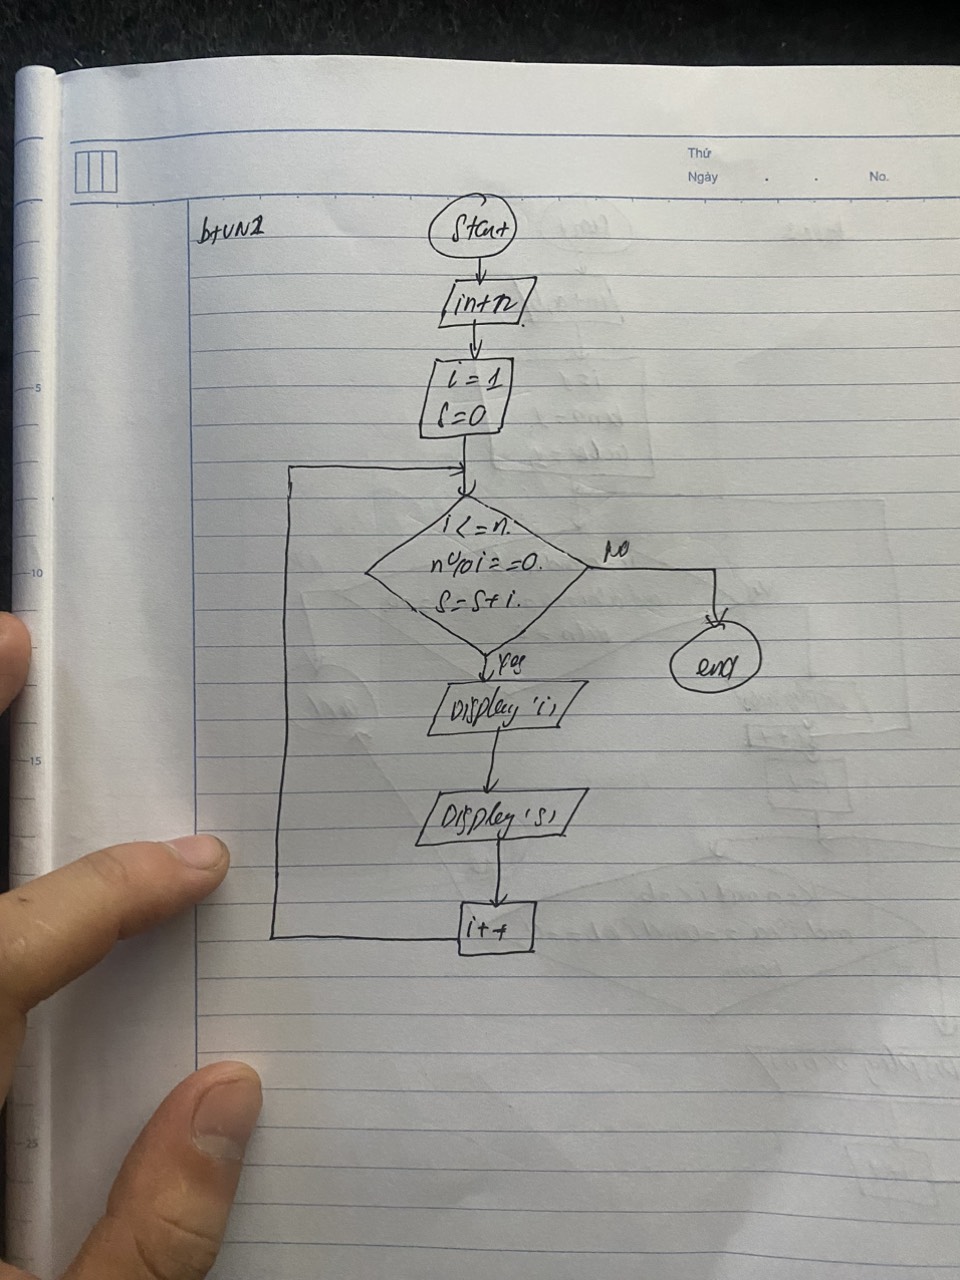 Thứ
Ngày . . No.
btVN1
Start
int n
i = 1
S=0
i <= n.
n%i==0.
S=S+i.
NO
end
Yes
Display 'i,
Display 's,
i++
5
10
15
25